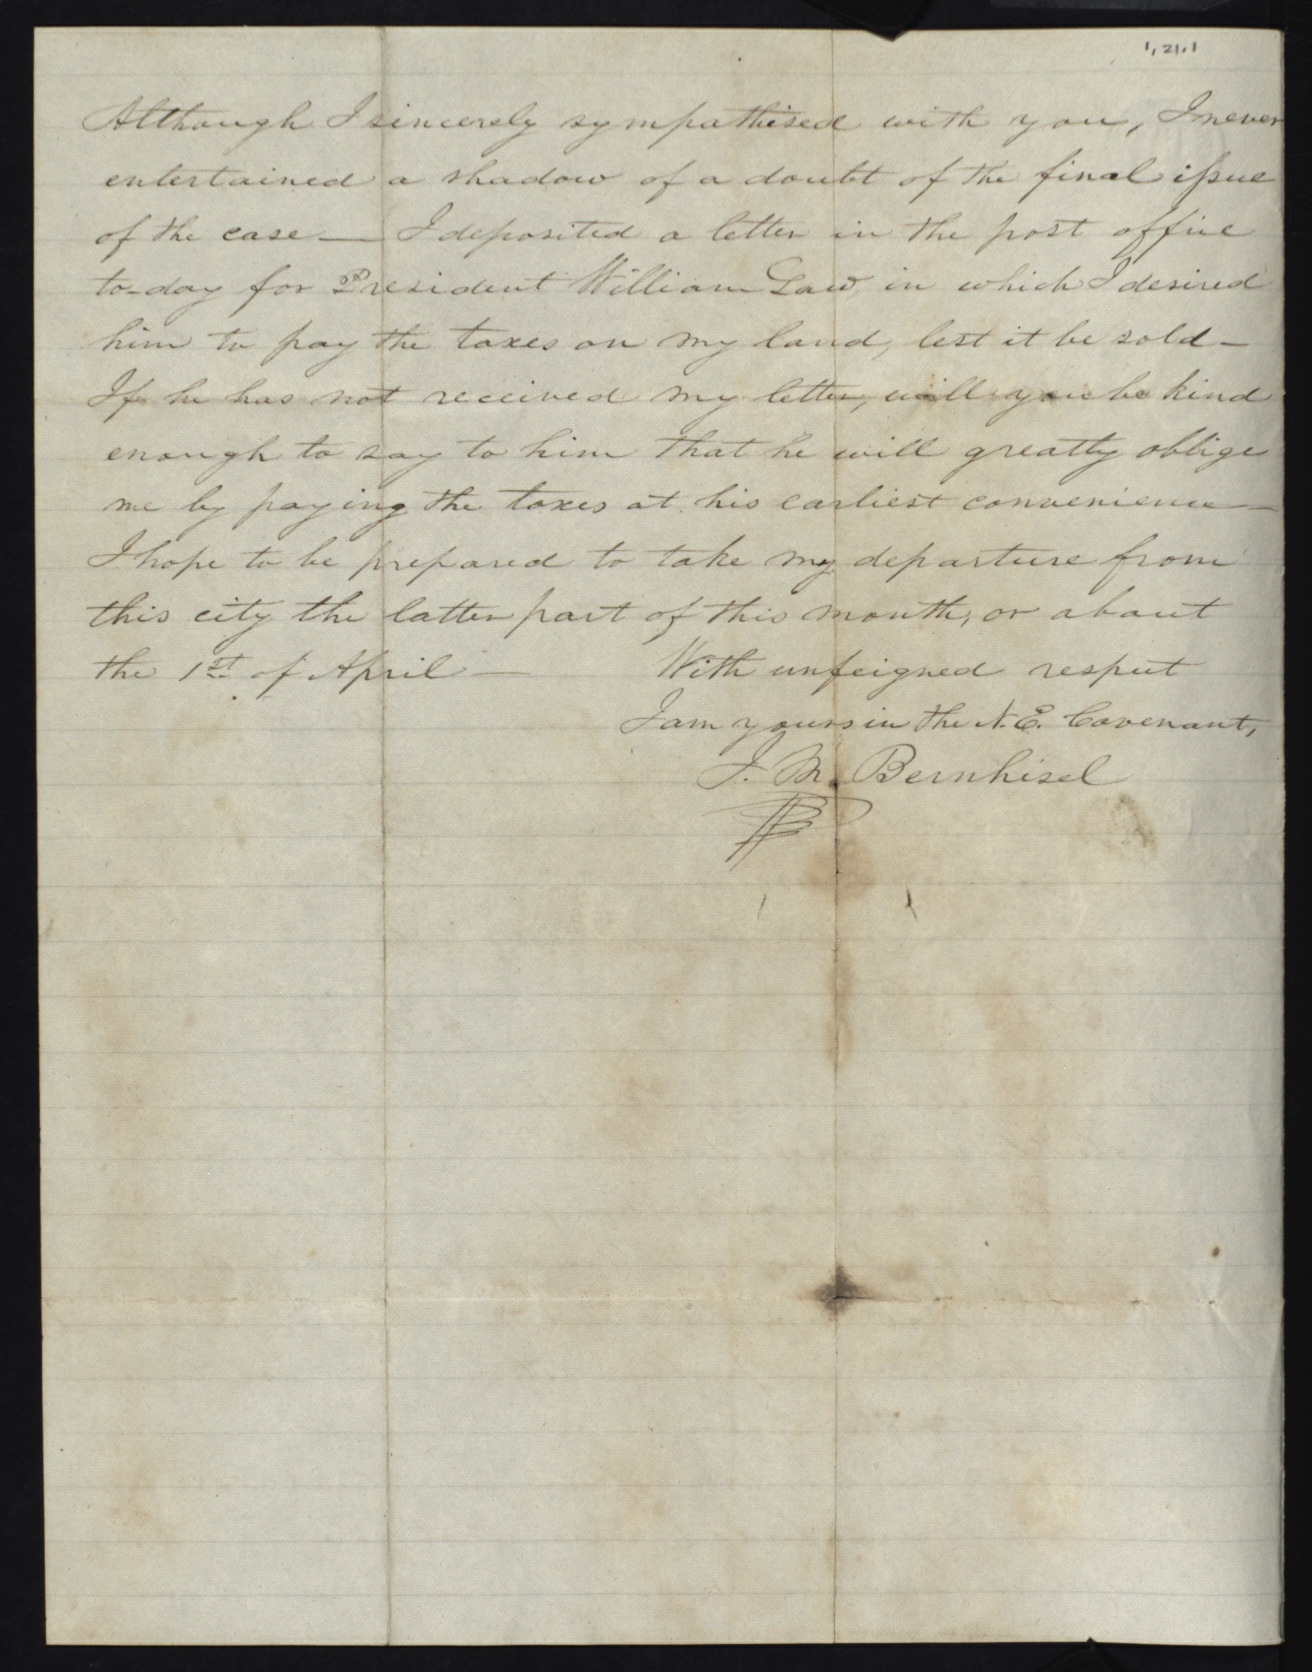 1, 21, 1
Although I sincerely sympathised with you, I never
entertained a shadow of a doubt of the final issue
of the case — I deposited a letter in the post office
to-day for President William Law, in which I desired
him to pay the taxes on my land, lest it be sold —
If he has not received my letter, will you be kind
enough to say to him that he will greatly oblige
me by paying the taxes at his earliest convenience —
I hope to be prepared to take my departure from
this city the latter part of this month, or about
the 1st of April — With unfeigned respect
I am yours in the N. E. Covenant,
J. M. Bernhisel